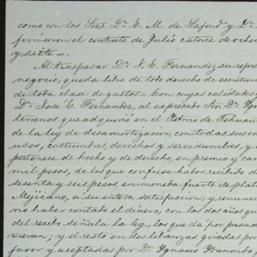 como con los Sres. Dn. E. M. de Lafond y Dn.
firmaron el contrato de Julio catorce de ochoc
y siete.
Al traspasar Dn. J. E. Fernandez su repre
negocio, queda libre de todo derecho de
de toda clase de gastos. Con cuyas calidades y
Dn. José E. Fernandez, al expresado Sor. Dn. Yg
terrenos que adquirió en el Ystmo de Tehuan
de la ley de desamortizacion con todas sus en
usos, costumbres, derechos y servidumbres, y
pertenece de hecho y de derecho, en precio y can
mil pesos, de los que confiesa haber recibido de
sesenta y seis pesos en moneda fuerte de plata
Mejicano, a su entera satisfaccion; y renuncia
no haber contado el dinero, con los dos años que
del recibo señala la ley, los que da por pasado
y el resto en dos libranzas, giradas por
favor y aceptadas por Dn. Ygnacio